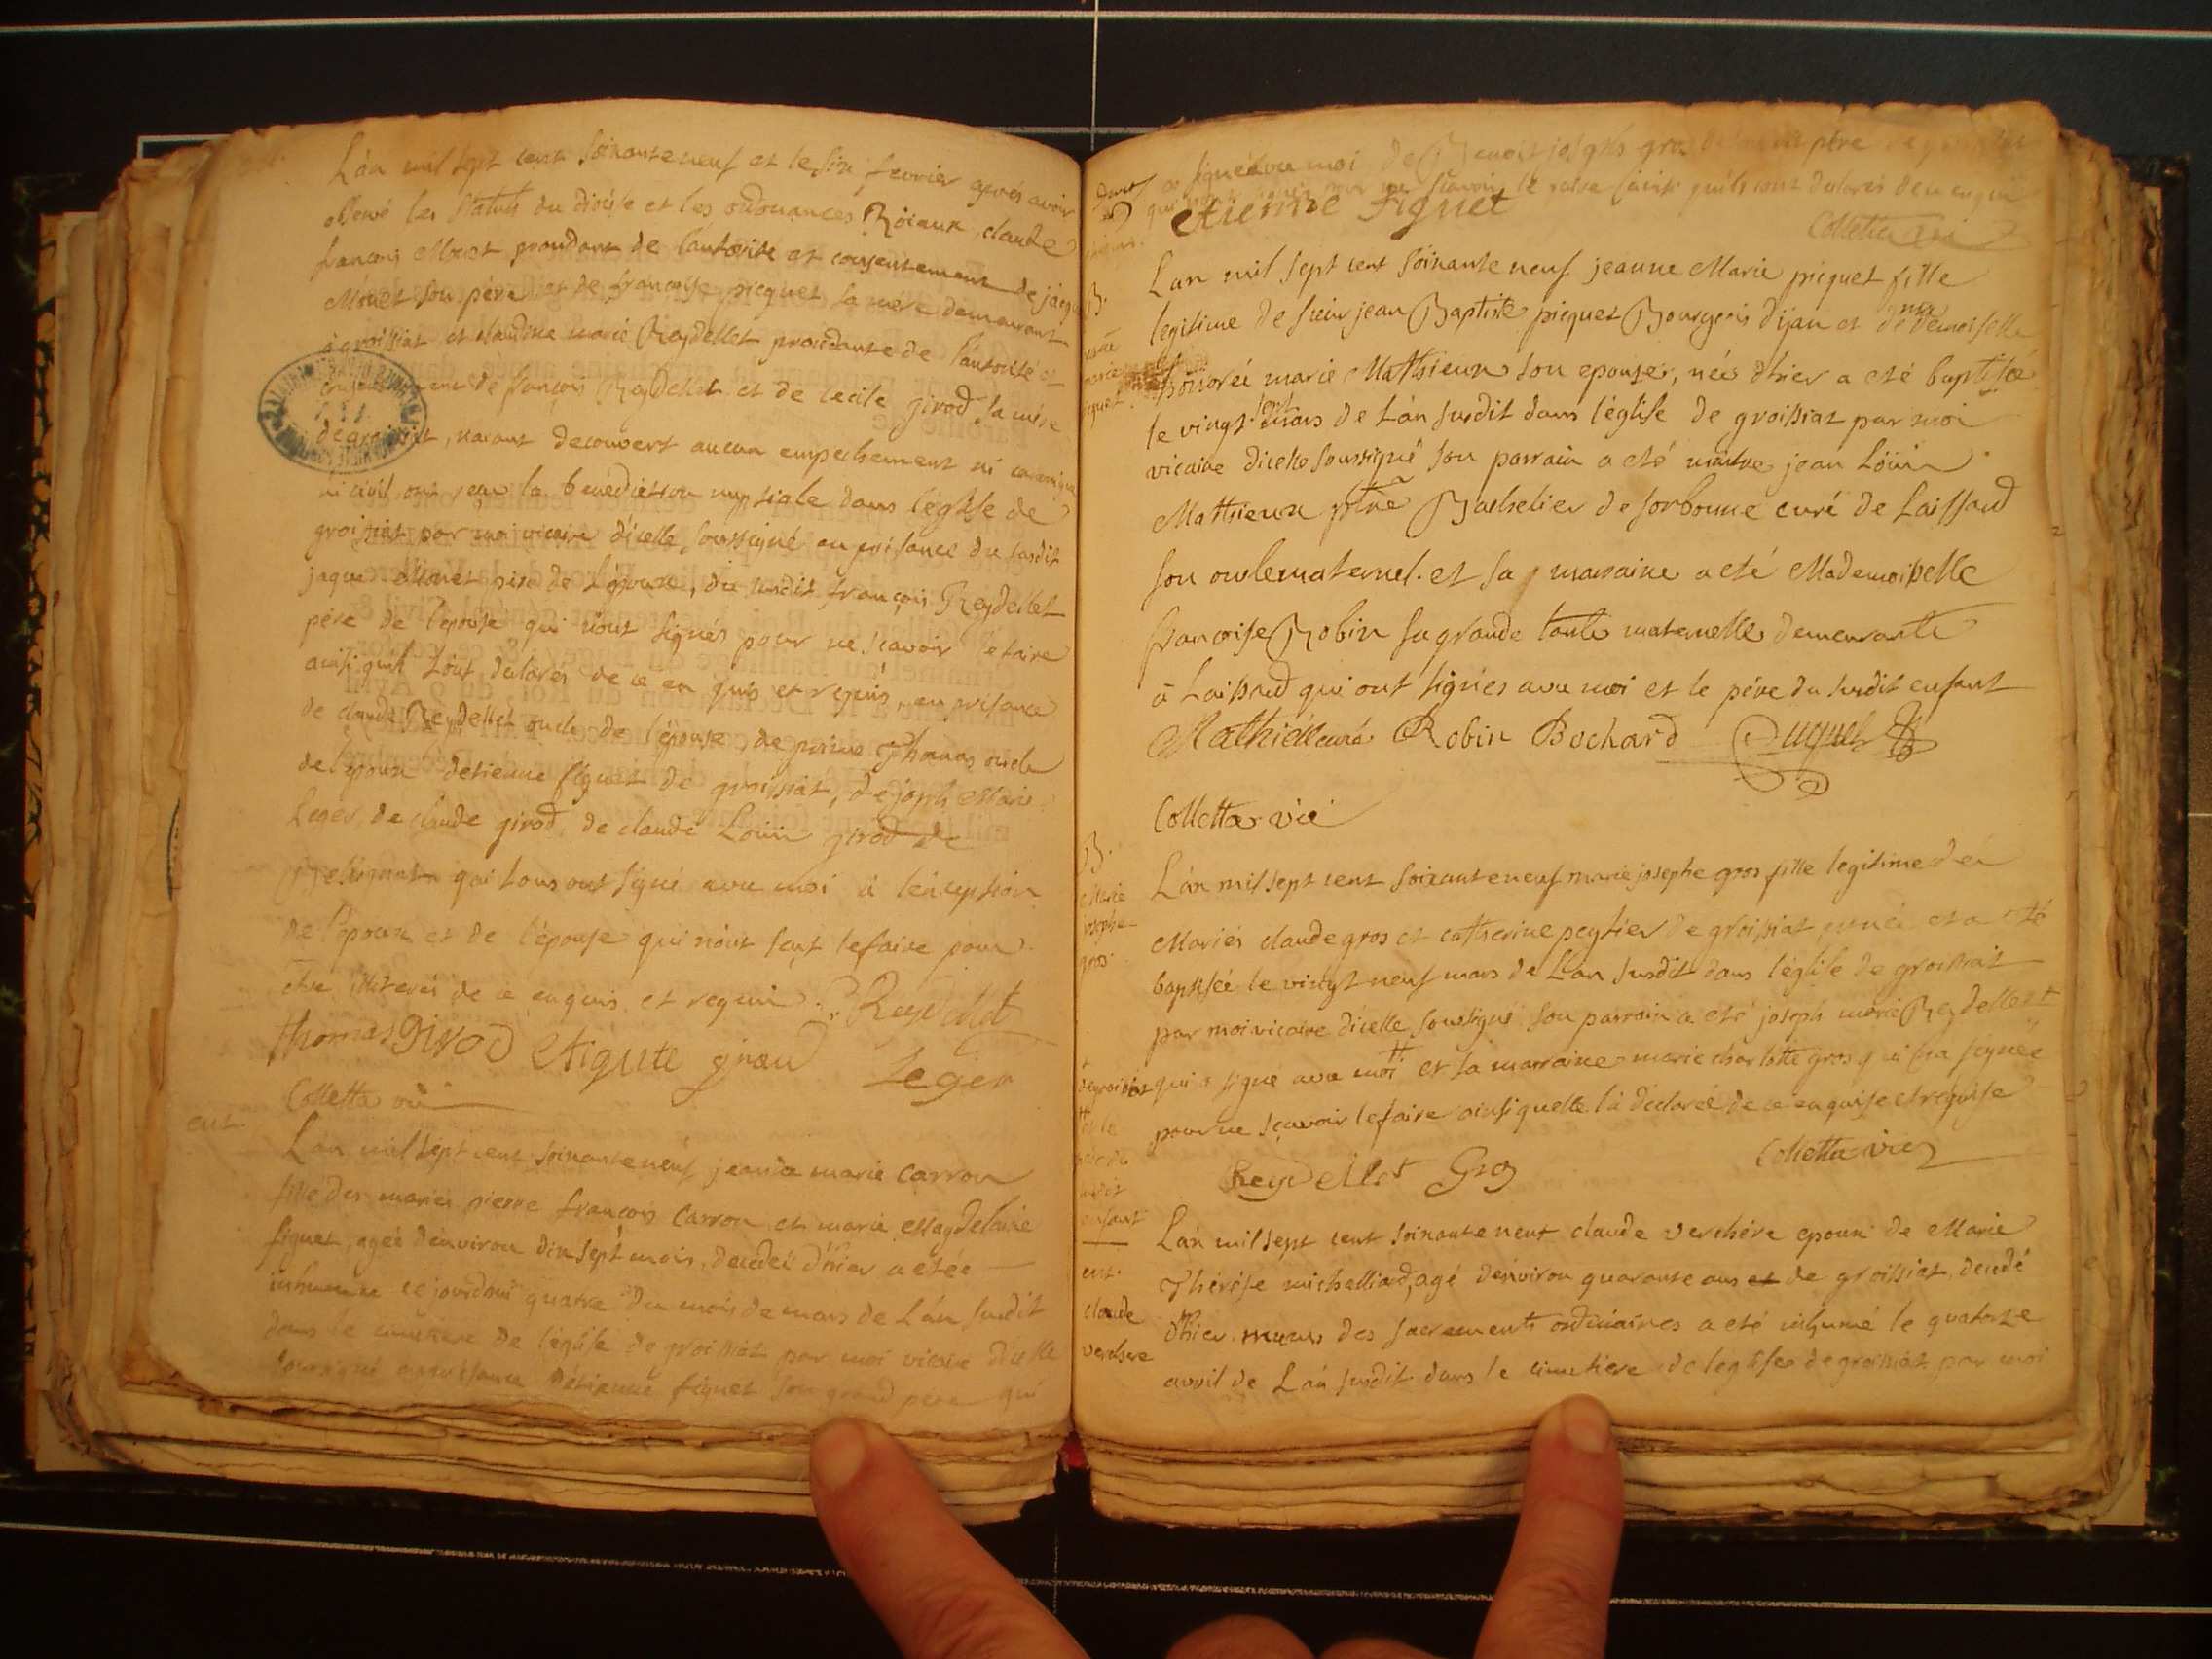 L'an mil sept cent soixante neuf et le six fevrier aprés avoir
observé les statuts du diocése et les ordonances Roiaux, claude
francois Monet procedant de lautorité et consentement de jacque
Monet son pére et de francoise picquet sa mére demeurant
à groissiat et claudine marie Reydellet procedante de l'autorité et
consentement de françois Reydellet et de cecile girod sa mére
de groissiat, naiant decouvert aucun empechement ni canonique
ni civil ont reçu la benediction nuptiale dans l'église de
groissiat par moi vicaire d'icelle soussigné en présence du susdit
jaque Monet pére de l'époux, du susdit françois Reydellet
pére de l'épouse qui n'ont signés pour ne sçavoir le faire
ainsi quils l'ont declarés de ce en quis et requis, en présence
de claude Reydellet oncle de l'épouse, de pierre Thomas oncle
de l'époux detienne figuet de groissiat, de joseph Marie
Leger, de claude girod, de claude Loüis girod de
qui tous ont signé avec moi à l'exception
de l'époux et de l'épouse qui n'ont sçut le faire pour
etre illiterés de ce enquis et requis. Reydellet
Thomas Girod girau Leger
Colletta vic
ent.
L'an mil sept cent soixante neuf jeanne marie Carron
fille des mariés pierre françois Carron et marie Magdelaine
figuet, agée d'environ dix sept mois, decedée d'hier a etée
inhumée ce jourdhui quatre du mois de mars de L'an susdit
dans le cimetiere de l'église de groissiat par moi vicaire d'icelle
soussigné en présence d'étienne figuet son grand pere qui
a signé avec moi de Benoit joseph gros
qui pour ne sçavoir le faire ainsi quils l'ont declarés de ce enquis
Etienne Figuet
Colletta vic
B.
marie
piquet
L'an mil sept cent soixante neuf jeanne Marie picquet fille
legitime de sieur jean Baptiste picquet Bourgeois d'ijan et de Demoiselle
honorée marie Mathieux son epouse, née d'hier a eté baptisée
le vingt sept mars de L'an susdit dans l'église de groissiat par moi
vicaire d'icelle soussigné son parrain a eté maitre jean Loüis
Mathieux ptre Bachelier de sorbonne curé de Laissaud
son oncle maternel. et sa marraine a eté Mademoiselle
francoise Robin sa grande tante maternelle demeurante
à Laissaud qui ont signés avec moi et le pére du susdit enfant
Mathieu curé Robin Bochard Puquet
Colletta vic
B.
Marie
josephe
gros
L'an mil sept cent soixante neuf marie josephe gros fille legitime des
Mariés claude gros et catherine peytier de groissiat, est née et a eté
baptisée le vingt neuf mars de L'an susdit dans l'église de groissiat
par moi vicaire d'icelle soussigné son parrain a eté joseph marie Reydellet +
qui a signé avec moi # et la marraine marie charlotte gros qui n'a signée
pour ne sçavoir le faire ainsi quelle l'a declarée de ce enquise et requise
+
de groissiat
# et le
pére du
susdit
enfant
Reydellet Gros Colletta vic
ent.
claude
verchere
L'an mil sept cent soixante neuf claude verchére epoux de Marie
Thérése michalliard, agé d'environ quarante ans et de groissiat, decedé
d'hier munis des sacrements ordinaires a eté inhumé le quatorze
avril de L'an susdit dans le cimetiere de l'église de groissiat par moi